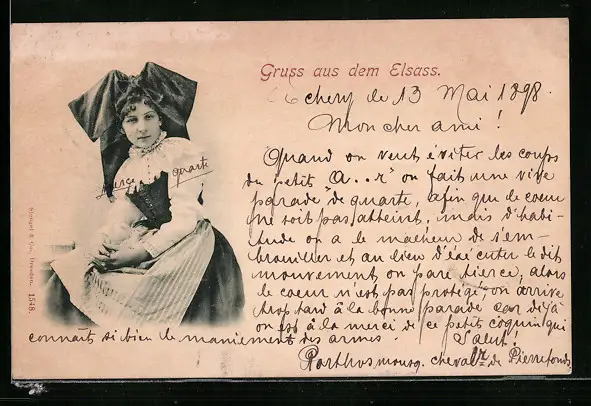 Gruss aus dem Elsass.
Echery de 13 Mai 1898.
Mon cher ami!
Quand on veut éviter les coups
du petit A..r" on fait une vive
parade "de quarte, afin que le coeur
ne soit pas atteint, mais d'habi-
tude on a le malheur de s'em-
brouiller et au lieu d'éxécuter le dit
mouvement on pare tierce, alors
le coeur n'est pas protégé, on arrive
trop tard à la bonne parade car déjà
on est à la merci de ce petit coquin qui
connaît si bien le maniement des armes. Salut!
Porthosmourg. chevalr. de Pierrefonds
tierce quarte
Stengel & Co., Dresden. 1548.